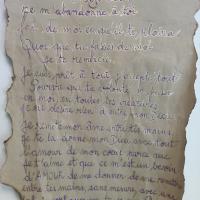 je m'abandonne à toi
fais de moi ce qu'il te plaira
Quoi que tu fasses de moi
je te remercie.
Je suis prêt à tout, j'accepte tout
Pourvu que ta volonté se fasse
en moi, en toutes tes créatures
je ne désire rien d'autre mon Dieu
Je remets mon âme entre tes mains
je te la donne mon Dieu avec tout
l'amour de mon cœur parce que
je t'aime et que ce m'est un besoin
d'AMOUR de me donner de me remettre
entre tes mains, sans mesure, avec une